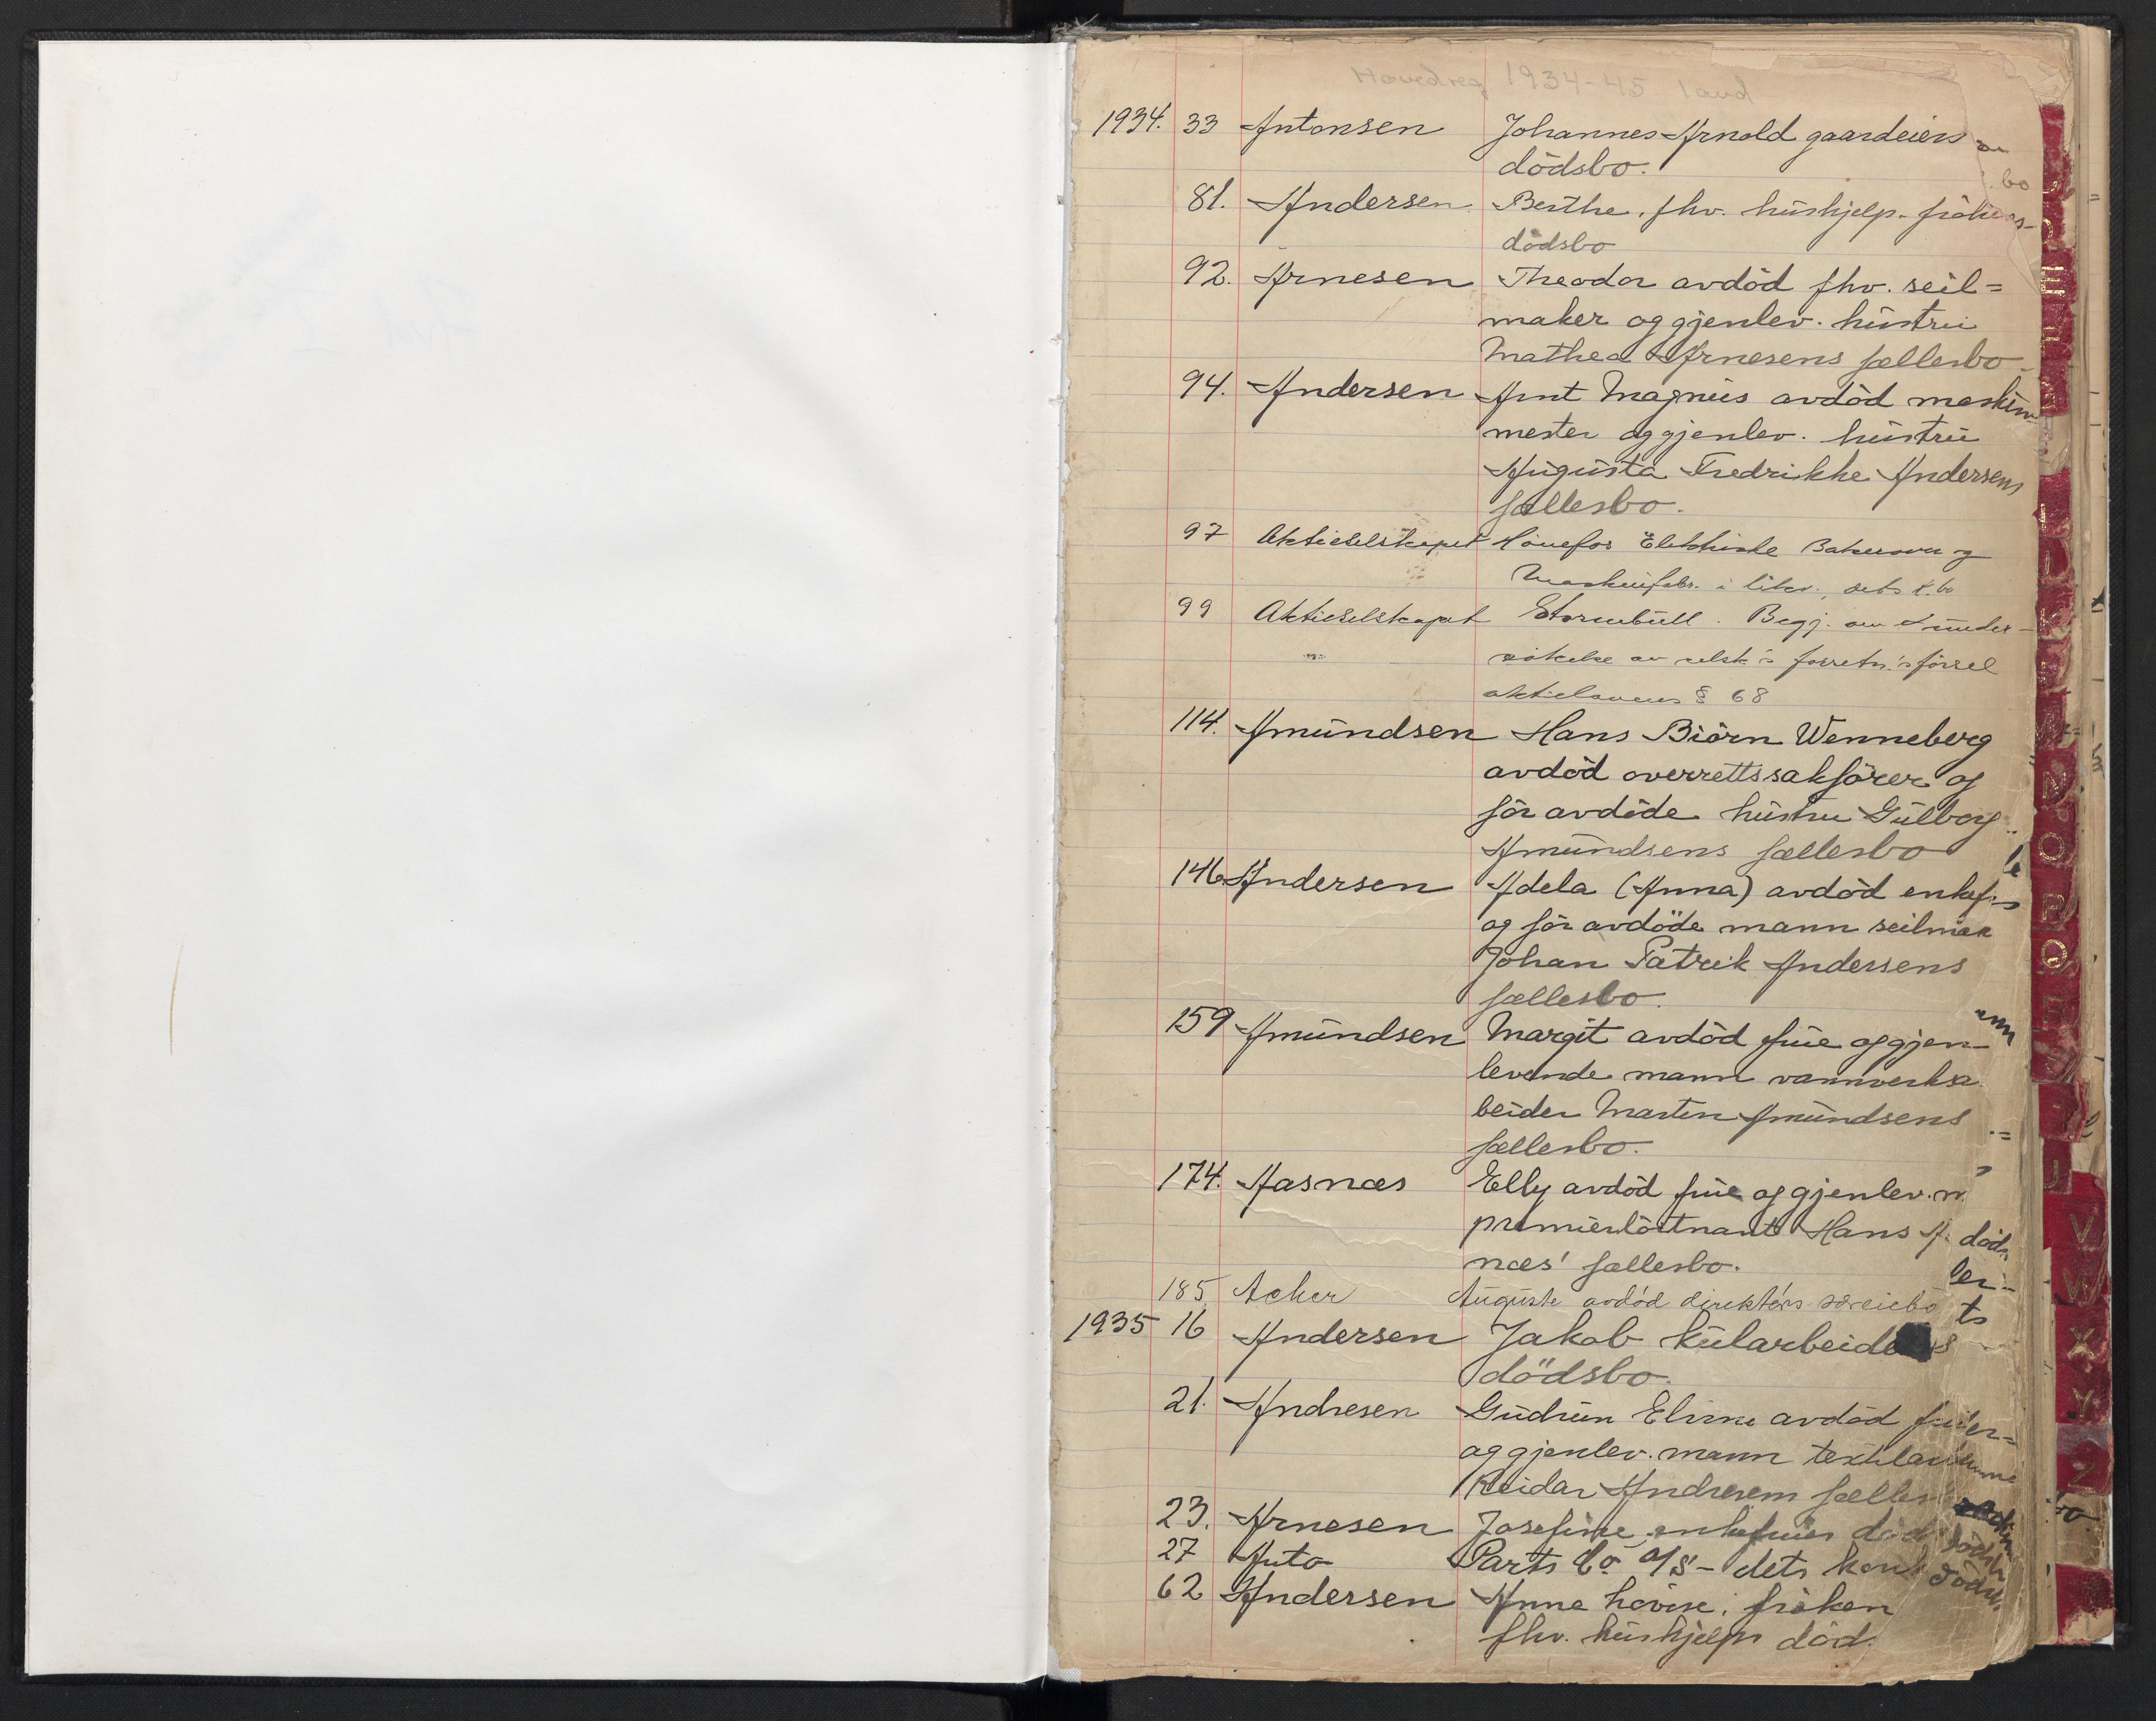 Hovedreg 1934-45
1934. 33 Antonsen Johannes Arnold gaardeiers
dödsbo.
81. Andersen Berthe, fhv. hushjelp-frökens
dödsbo
92. Arnesen Theodor avdöd fhv. seil=
maker og gjenlev. hustru
Mathea Arnesens fællesbo
94. Andersen Arnt Magnus avdöd maskin-
mester og gjenlev. hustru
Augusta Fredrikke Andersens
fællesbo.
97 Aktieselskapet Hönefos Elektriske Bakerovn og
Maskinfabr. i likv., dets k.bo
99 Aktieselskapet Stormbull. Begj. om under-
sökelse av selsk's forretn.'s försel
aktielovens § 68
114. Amundsen Hans Biörn Wenneberg
avdöd overrettssakförer og
för avdöde hustru Gulborg
Amundsens fællesbo
146 Andersen Adela (Anna) avdöd enkef
og för avdöde mann seilmak
Johan Patrik Andersens
fællesbo.
159 Amundsen Margit avdöd frue og gjen-
levende mann vannverksa
beider Martin Amundsens
fællesbo.
174. Aasnæs Elly avdöd frue og gjenlev. m
premierlöitnant Hans A
næs' fællesbo.
185 Acker Auguste avdöd direktörs særeiebo
1935 16 Andersen Jakob kularbeiders
dödsbo.
21. Andresen Gudrun Elvine avdöd frue
og gjenlev. mann textilar
Reidar Andresens fælles
23. Arnesen Josefine enkefrues död
27 Auto Parts Co A/S - dets konk
62 Andersen Anne Lovise, fröken
fhv. hushjelps död.
D
E
F
I
J
K
L
M
N
O
P
Q
R
S
T
U
V
W
X
Y
Z